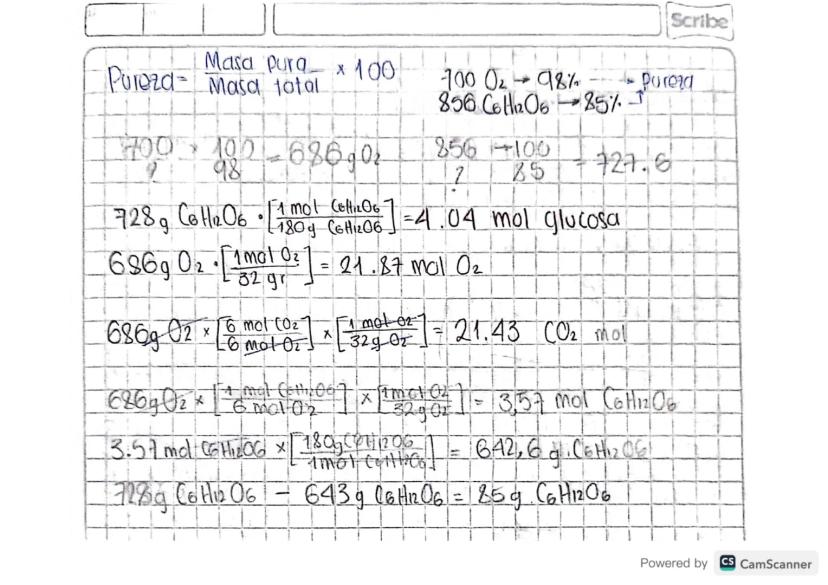 Scribe
Pureza = Masa pura / Masa total × 100
700 O2 → 98% ----→ Pureza
856 C6H12O6 → 85%
700 / ? × 100 / 98 = 686 g O2
856 / ? → 100 / 85 = 727.6
728g C6H12O6 · [1 mol C6H12O6 / 180g C6H12O6] = 4.04 mol glucosa
686g O2 · [1 mol O2 / 32 gr] = 21.87 mol O2
686g O2 × [6 mol CO2 / 6 mol O2] × [1 mol O2 / 32g O2] = 21.43 CO2 mol
686g O2 × [1 mol C6H12O6 / 6 mol O2] × [1 mol O2 / 32g O2] = 3,57 mol C6H12O6
3.57 mol C6H12O6 × [180g C6H12O6 / 1 mol C6H12O6] = 642,6 g. C6H12O6
728g C6H12O6 - 643g C6H12O6 = 85g. C6H12O6
Powered by CS CamScanner